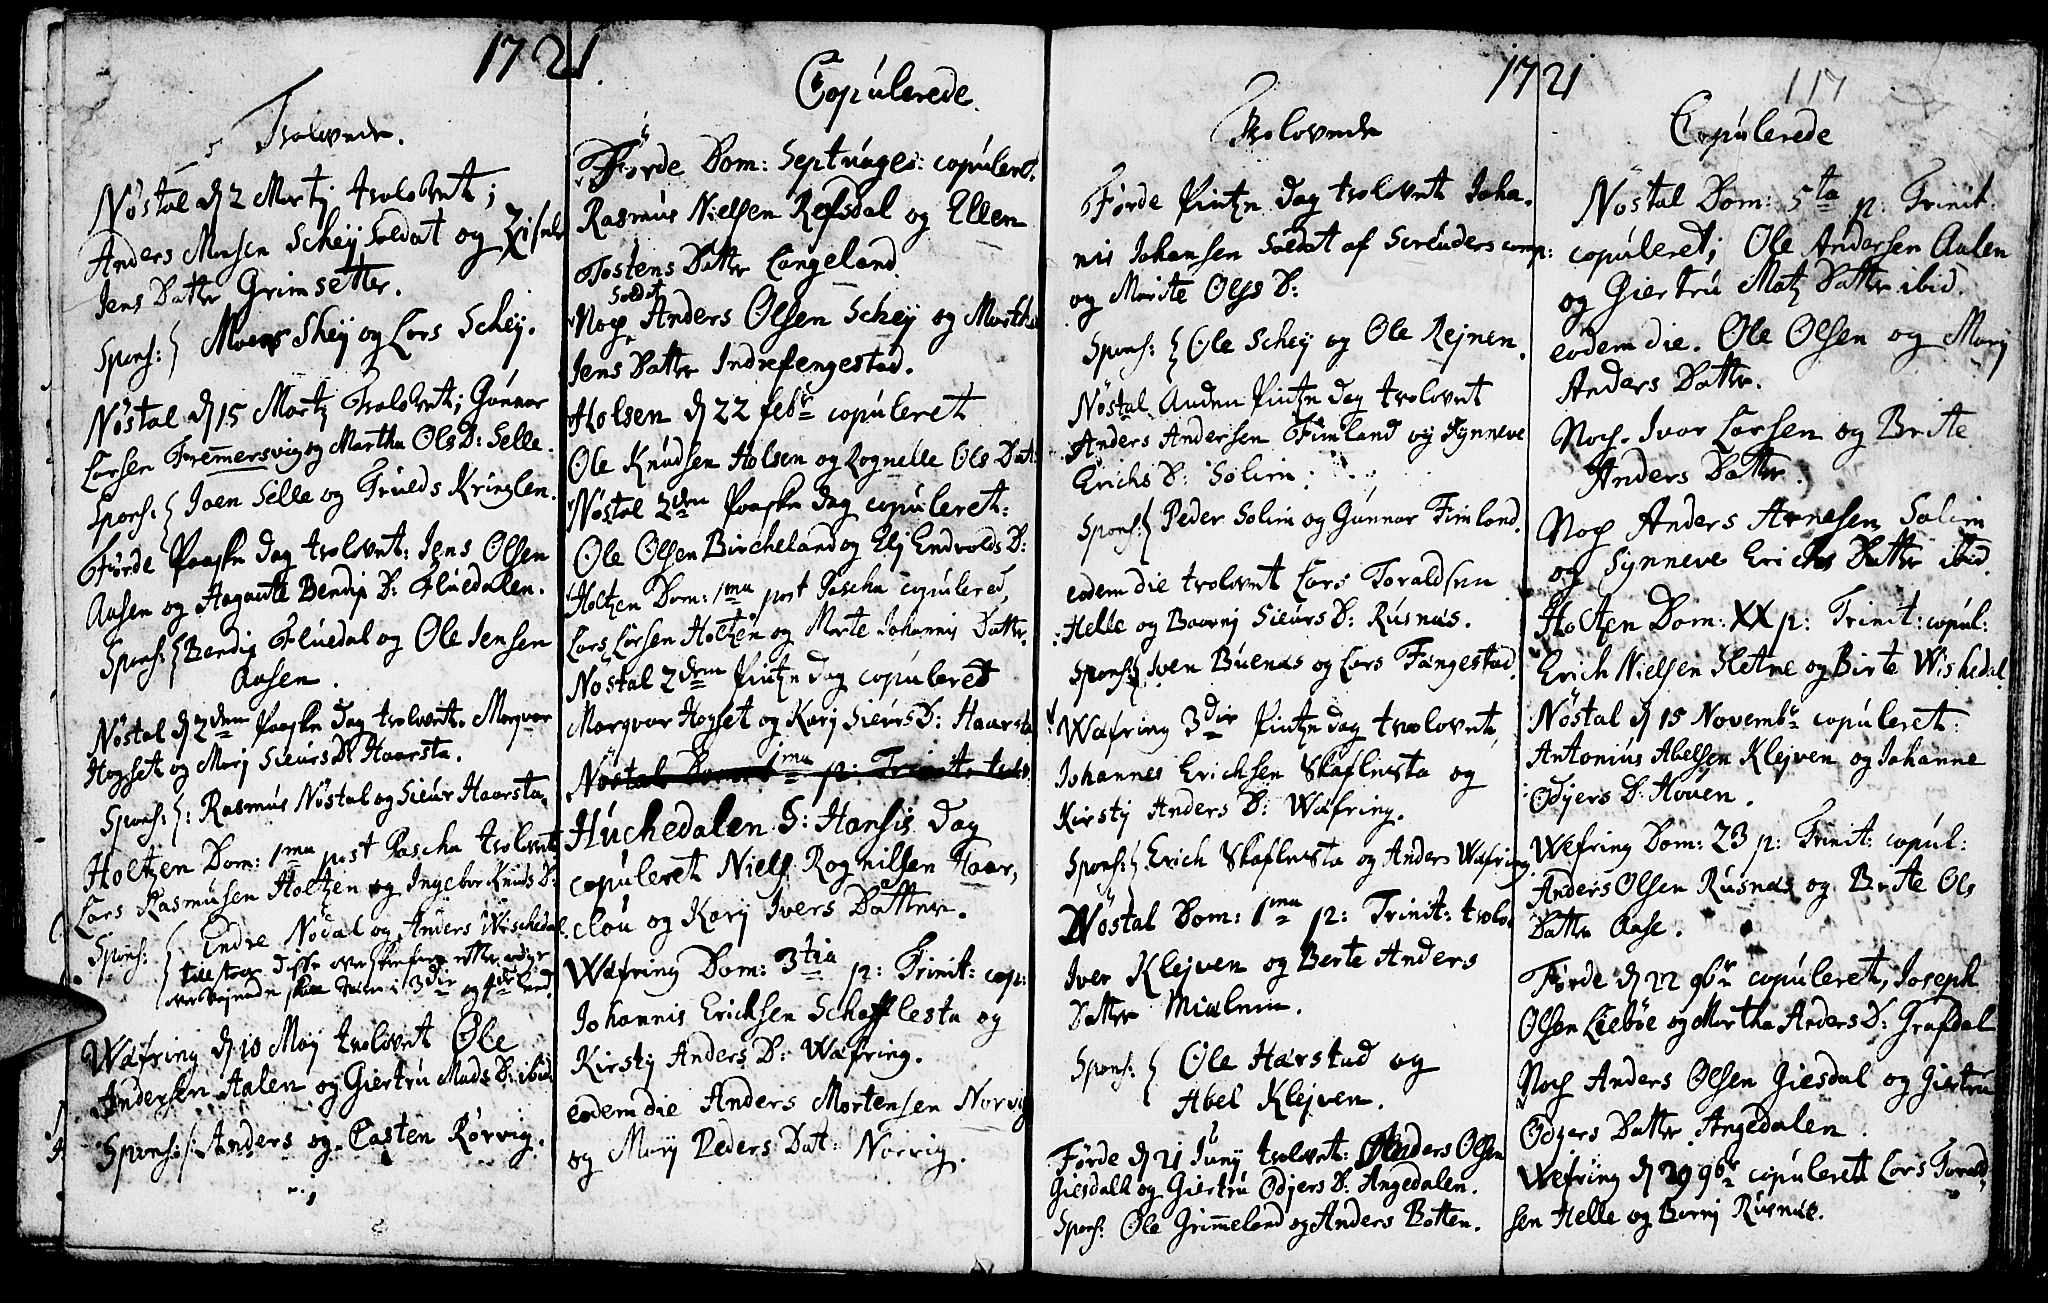 1721.
Trolovede.
Nøstal d 2 Martj trolovet;
Anders Monsen Scheij Soldat og
Jens Datter Grimsetter.
Spons: Moens Sheij og Lars Scheij.
Nøstal d 15 Martj Trolovet; Gunnar
Larsen Fremmersvig og Martha Ols D: Selle.
Spons: Joen Selle og Truels Kringlen.
Førde Paaske dag trolovet: Jens Olsen
Aasen og Aagaute Bendix D: Fluedalen.
Spons: Bendix Fluedal og Ole Jensen
Aasen.
Nøstal d 2den Paaske dag trolovet. Marqvar
Hogset og Marj Sieurs D: Haarsta.
Spons: Rasmus Nøstal og Sieur Haarsta.
Holtzen Dom: 1ma post Pascha trolovet
Lars Rasmusen Holtzen og Ingebor Knuds D:
Spons: Endre Nødal og Anders Wieschedal.
disse
3die og 4de Leed.
Wæfring d 10 Maij trolovet Ole
Andersen Aalen og Giertru Mads D: ibid.
Spons: Anders og Casten Rørvig.
Copulerede.
Førde Dom: Septuages: copuleret.
Rasmus Nielsen Refsdal og Ellen
Tostens Datter Langeland.
Soldat
Noch Anders Olsen Scheij og Marthe
Jens Datter Indrefengestad.
Holsen d 22 febr copuleret
Ole Knudsen Holsen og Rognelle Ols Dat:
Nøstal 2den Paaske dag copuleret:
Ole Olsen Bircheland og Elj Endvolds D:
Holtzen Dom: 1ma post Pascha copulered,
Lars Larsen Holtzen og Marte Johannis Datter.
Nøstal 2den Pintze dag copuleret
Marqvar Hogset og Karj Sieurs D: Haarsta
Nøstal Dom: 1ma p: Trinit: trolov:
Huchedalen S: Hansis Dag
copuleret Niels Rognilsen Haar,
clou og Karj Ivers Datter.
Wæfring Dom: 3tia p: Trinit: cop:
Johannis Ericksen Schafflesta og
Kirstj Anders D: Wæfring.
eodem die Anders Mortensen Norvig
og Marj Peders Dat: Norvig.
1721
117
Trolovede
Førde Pintze dag trolovet Joha,
nis Johansen Soldat af Screuders comp:
og Marite Ols D:
Spons: Ole Scheij og Ole Rejnen.
Nøstal Anden Pintze dag trolovet
Anders Andersen Fimland og Synneve
Erichs D: Solim:
Spons: Peder Solim og Gunnar Fimland.
eodem die trolovet Lars Toraldsen
Helle og Baarnj Sieurs D: Rusnæs.
Spons: Iven Buenæs og Lars Fangestad.
Wæfring 3die Pintze dag trolovet,
Johannes Ericksen Skaflesta og
Kirstj Anders D: Wæfring.
Spons: Erich Skaflesta og Anders Wæfring
Nøstal Dom: 1ma p: Trinit: trolo,
Iver Klejven og Berte Anders
Datter Mielnim.
Spons: Ole Harstad og
Abel Klejven.
Førde d 21 Junij trolovet: Anders Olsen
Giesdall og Giertru Odjers D: Angedalen.
Spons: Ole Grimmeland og Anders Botten.
Copulerede
Nøstal Dom: 5ta p: Trinit.
copuleret; Ole Andersen Aalen
og Giertru Matz Datter ibid.
eodem die. Ole Olsen og Marj
Anders Datter.
Noch. Ivar Larsen og Brite
Anders Datter.
Noch Anders Arnesen Solim
og Synneve Erichs Datter ibid.
Holtzen Dom: XX p: Trinit: copul:
Erich Nielsen Sletne og Birte Wishedal.
Nøstal d 15 Novembr copuleret:
Antonius Abelsen Klejven og Johanne
Odjers D: Houen.
Wefring Dom: 23 p: Trinit: copul:
Anders Olsen Rusnæs og Brite Ols
Datter Aase.
Førde d 22 9br copuleret, Joseph
Olsen Liebøe og Martha Anders D: Grafdal
Noch Anders Olsen Giesdal og Giertru
Odjers Datter Angedalen.
Wefring d 29 9br copuleret Lars Torald,
sen Helle og Bornj Rusnæs.